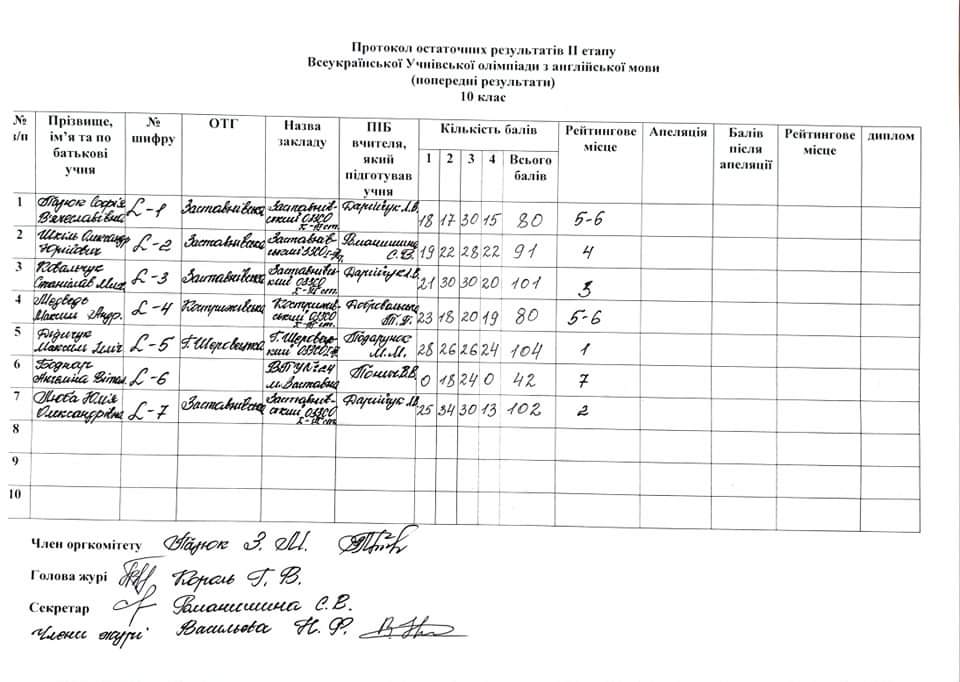 Протокол остаточних результатів ІІ етапу
Всеукраїнської Учнівської олімпіади з англійської мови
(попередні результати)
10 клас
№ з/п Прізвище, ім’я та по батькові учня № шифру ОТГ Назва закладу ПІБ вчителя, який підготував учня Кількість балів 1 2 3 4 Всього балів Рейтингове місце Апеляція Балів після апеляції Рейтингове місце диплом
1 Софія Вячеславівна L-1 Заставнівська Заставнівський ОЗЗСО І-ІІІ ст. Дарійчук Л.В. 18 17 30 15 80 5-6
2 Шкіль Олександр Юрійович L-2 Заставнівська Романишина С.В. 19 22 28 22 91 4
3 Ковальчук Станіслав L-3 Заставнівська Заставнівський ОЗЗСО І-ІІІ ст. Дарійчук Л.В. 21 30 30 20 101 3
4 Медведь Максим Андр. L-4 Кострижівська Кострижівський ОЗЗСО І-ІІІ ст. 23 18 20 19 80 5-6
5 Дідичук Максим Ілліч L-5 Г.Шеровецька Г.Шеровецький Подарунок М.М. 28 26 26 24 104 1
6 Боднар Ангеліна L-6 ВПУ №24 м. Заставна 0 18 24 0 42 7
7 Люба Юлія Олександрівна L-7 Заставнівська Заставнівський ОЗЗСО І-ІІІ ст. Дарійчук Л.В. 25 34 30 13 102 2
8
9
10
Член оргкомітету З. М.
Голова журі Король Г. В.
Секретар Романишина С. В.
Члени журі Васильова Н. Ф.